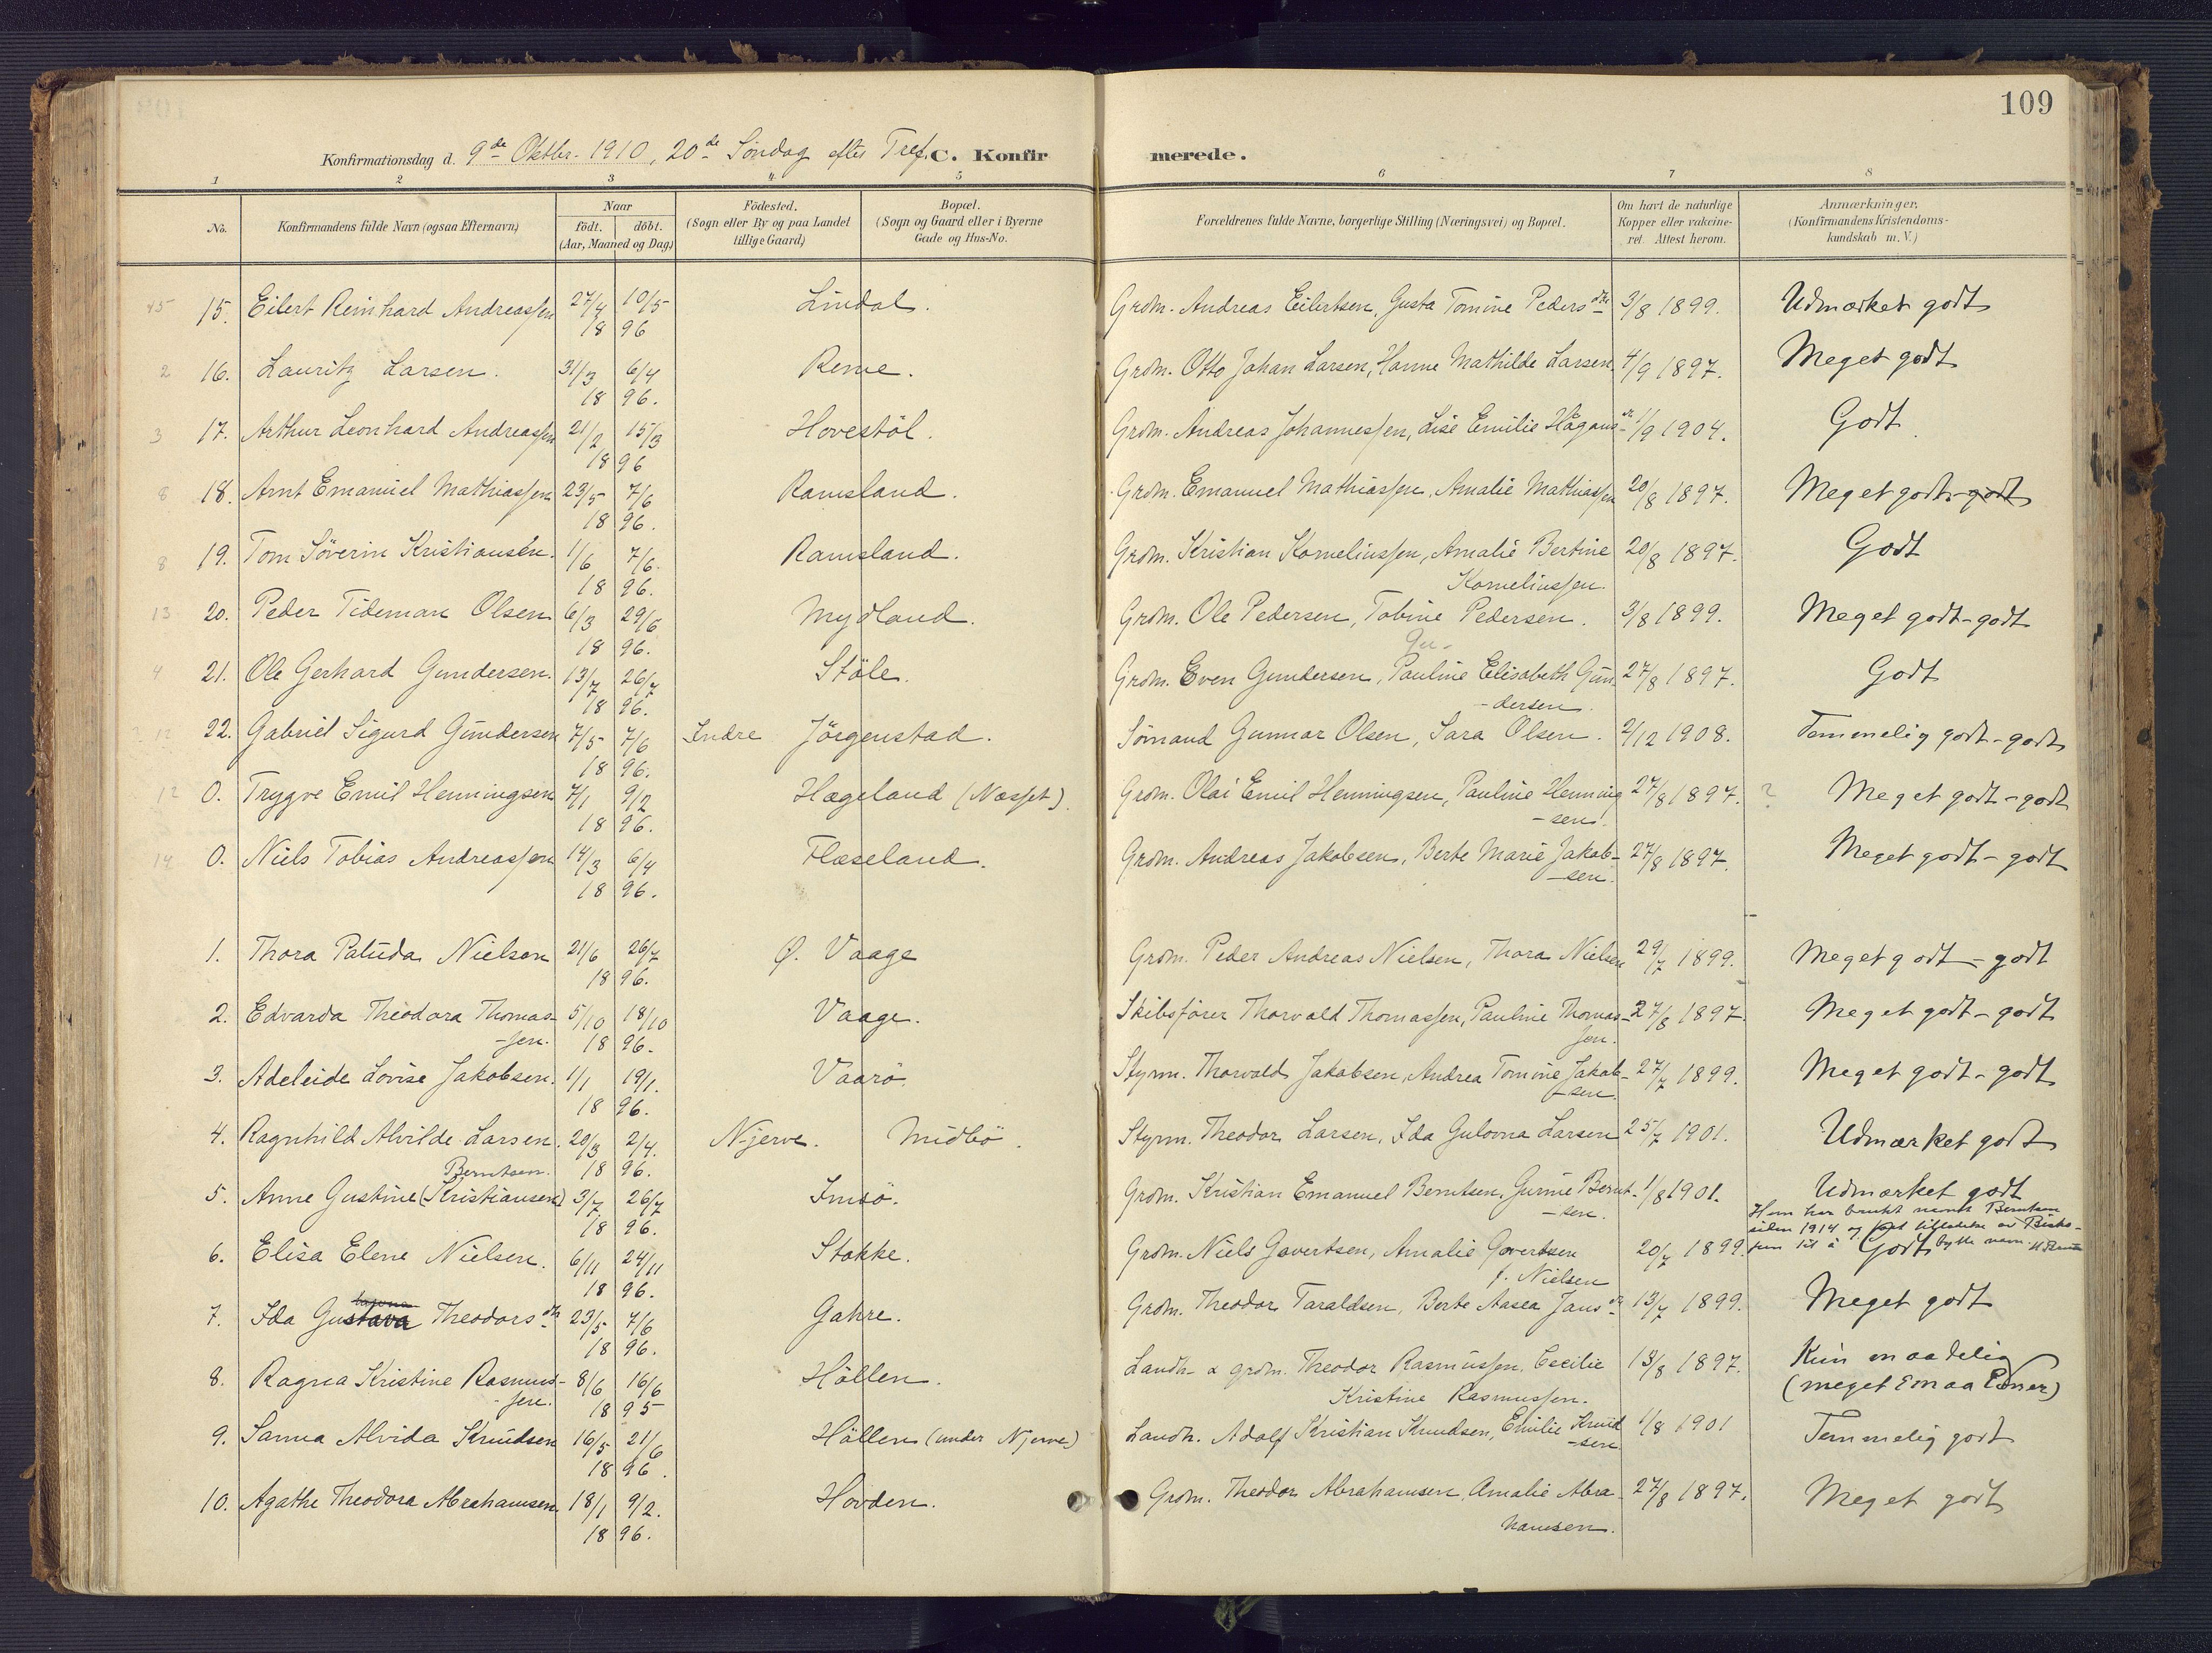 109
Konfirmationsdag d. 9de Oktbr. 1910, 20de Søndag efter Tref. C. Konfir merede.
1 2 3 4 5 6 7 8
No. Konfirmandens fulde Navn (ogsaa Efternavn) Naar født. døbt. (Aar, Maaned og Dag) Fødested. (Sogn eller By og paa Landet tillige Gaard) Bopæl. (Sogn og Gaard eller i Byerne Gade og Hus-No. Forældrenes fulde Navne, borgerlige Stilling (Næringsvei) og Bopæl. Om havt de naturlige Kopper eller vakcineret. Attest herom. Anmærkninger, (Konfirmandens Kristendomskundskab m. V.)
45 15. Eilert Reinhard Andreassen 27/4 10/5 Lindal. Grdm. Andreas Eilertsen, Gusta Tomine Pedersdtr 3/8 1899. Udmærket godt
18 96
2 16. Lauritz Larsen. 31/3 6/4 Reme. Grdm. Otto Johan Larsen, Hanne Mathilde Larsen 4/9 1897. Meget godt
18 96.
3 17. Arthur Leonhard Andreassen 21/2 15/3 Hovestøl. Grdm. Andreas Johannessen, Lise Emilie Hågansdr 1/9 1904. Godt
18 96
8 18. Arnt Emanuel Mathiassen 23/5 7/6 Ramsland. Grdm. Emanuel Mathiassen, Amalie Mathiassen 20/8 1897. Meget godt-godt
18 96.
8 19. Tom Søverin Kristiansen. 1/6 7/6. Ramsland. Grdm. Kristian Korneliussen, Amalie Bertine 20/8 1897. Godt
18 96. Korneliussen.
13 20. Peder Tideman Olsen 6/3 29/6 Mydland. Grdm. Ole Pedersen, Tobine Pedersen. 3/8 1899. Meget godt-godt
18 96. Gu-
4 21. Ole Gerhard Gundersen. 13/7 26/7 Støle. Grdm. Even Gundersen, Pauline Elisabeth Gun- 27/8 1897. Godt
18 96. -dersen.
12 22. Gabriel Sigurd Gundersen 7/5 7/6 Indre Jørgenstad. Sømand Gunnar Olsen, Sara Olsen. 2/12 1908. Temmelig godt-godt
18 96.
12 0. Trygve Emil Henningsen 7/1 9/2 Hægeland (Næsset). Grdm. Olai Emil Henningsen, Pauline Henning 27/8 1897. ? Meget godt-godt
18 96. -sen.
14 0. Niels Tobias Andreassen 14/3 6/4 Flæseland. Grdm. Andreas Jakobsen, Berte Marie Jakob- 27/8 1897. Meget godt-godt
18 96. -sen.
1. Thora Palida Nielsen 21/6 26/7 Ø. Vaage Grdm. Peder Andreas Nielsen, Thora Nielsen 29/7 1899. Meget godt-godt
18 96.
2. Edvarda Theodora Thomas- 5/10 18/10 Vaage. Skibsfører Thorvald Thomassen, Pauline Thomas- 27/8 1897. Meget godt-godt
-sen. 18 96. sen.
3. Adeleide Lovise Jakobsen. 1/1 19/1. Vaarø. Styrm. Thorvald Jakobsen, Andrea Tomine Jakob- 27/7 1899. Meget godt-godt
18 96. -sen.
4. Ragnhild Alvilde Larsen. 20/3 2/4. Njerve. Midbø. Styrm. Theodor Larsen, Ida Gulovna Larsen 25/7 1901. Udmærket godt
Berntsen. 18 96.
5. Anne Gustine (Kristiansen) 3/7 26/7 Imsø. Grdm. Kristian Emanuel Berntsen, Gurine Bernt- 1/8 1901. Udmærket godt
18 96. -sen. Hun har brukt navnet Berntsen
siden 1914 og fået tilladelse av Bisko-
6. Elisa Elene Nielsen. 6/11 24/11 Stokke. Grdm. Niels Govertsen, Amalie Govertsen 20/7 1899. pen til å Godt bytte navn.
18 96. f. Nielsen
7. Ida Gustava Theodorsdtr 23/5 7/6 Gahre. Grdm. Theodor Taraldsen, Berte Aasea Jansdr 13/7 1899. Meget godt
18 96.
8. Ragna Kristine Rasmus- 8/6 16/6 Hållen. Landh. & grdm. Theodor Rasmussen, Cecilie 13/8 1897. Kun maadelig
-sen. 18 95 Kristine Rasmussen. (meget smaa Evner)
9. Sanna Alvida Knudsen 16/5 21/6 Hållen (under Njerve) Landh. Adolf Kristian Knudsen, Emilie Knud 1/8 1901 Temmelig godt
18 96. -sen
10. Agathe Theodora Abrahamsen. 18/1 9/2. Hovden. Grdm. Theodor Abrahamsen, Amalie Abra- 27/8 1897. Meget godt
18 96. hamsen.